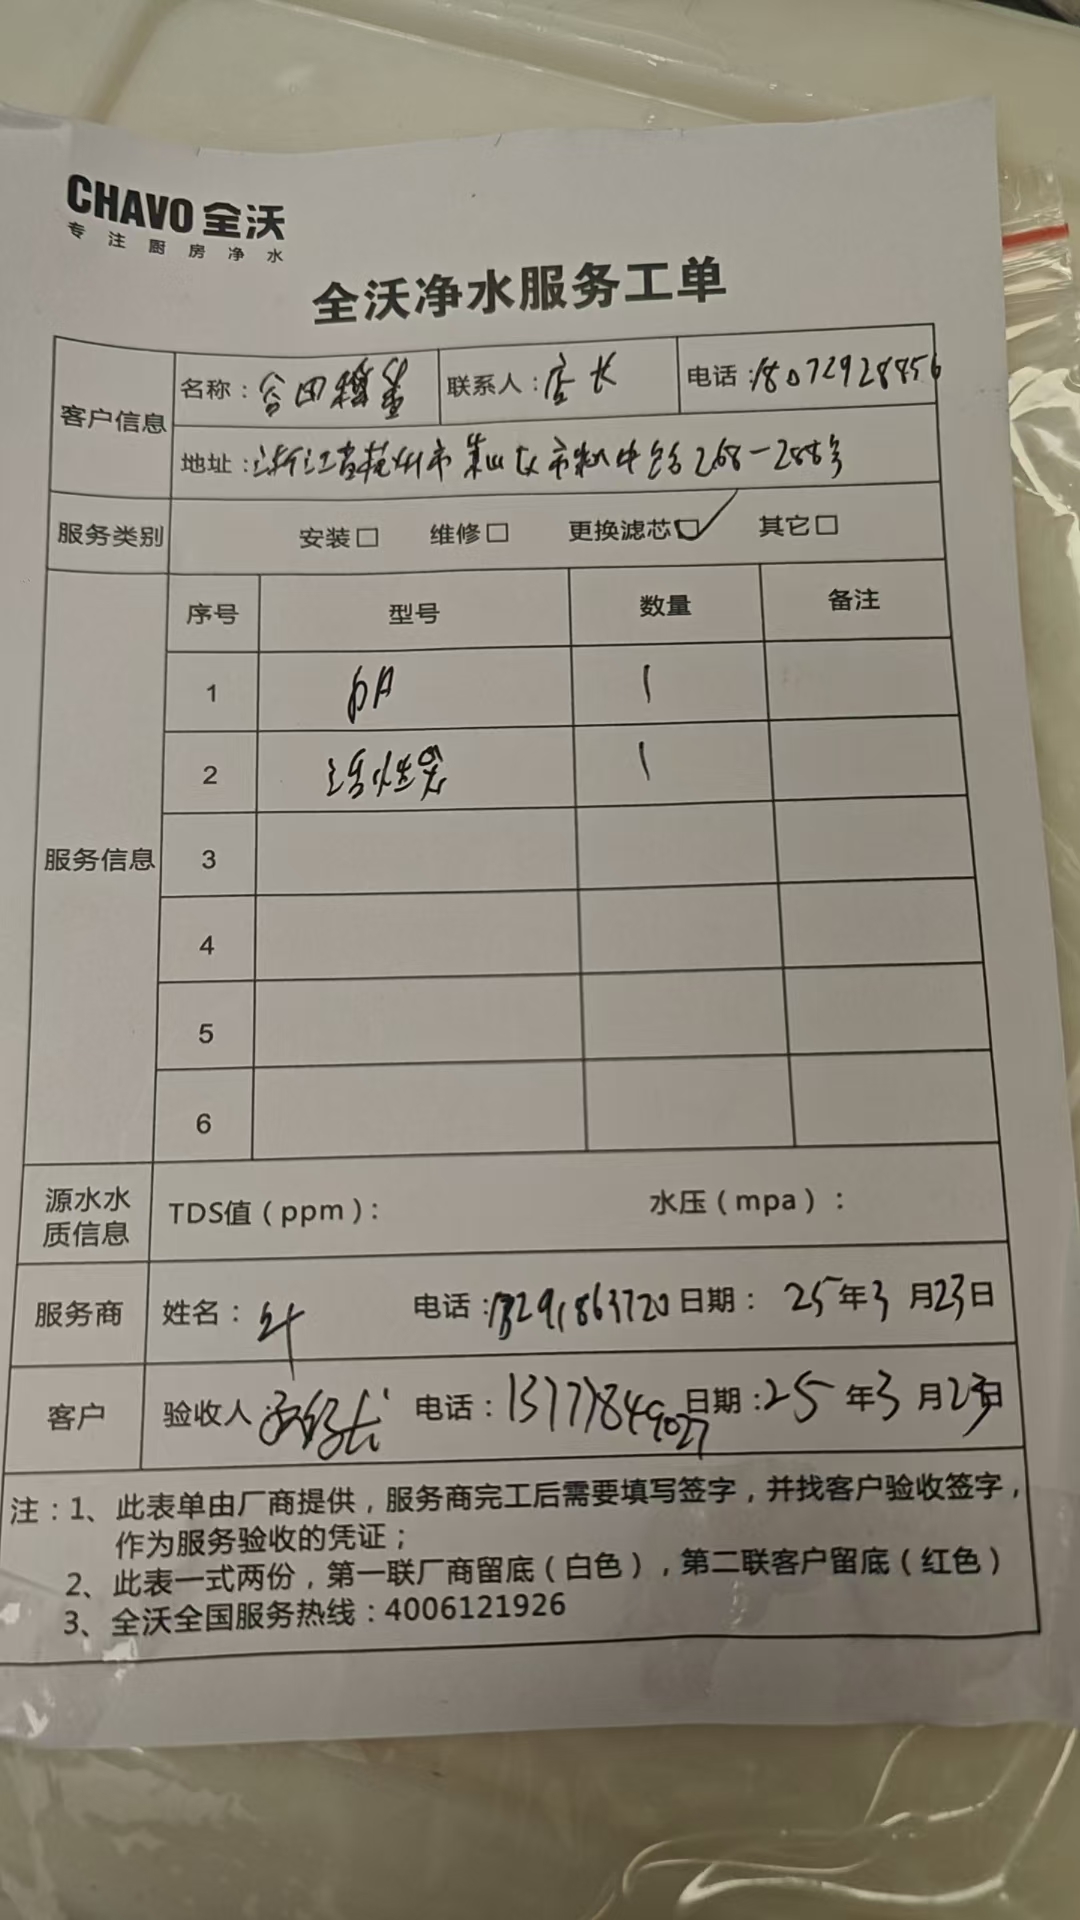 CHAVO 全沃
专注厨房净水
全沃净水服务工单
客户信息
名称： 联系人：店长 电话：18072928856
地址：浙江省杭州市萧山区市心中路268-288号
服务类别 安装□ 维修□ 更换滤芯□✓ 其它□
服务信息
序号 型号 数量 备注
1 1
2 活性炭 1
3
4
5
6
源水水质信息 TDS值（ppm）： 水压（mpa）：
服务商 姓名：叶 电话： 日期：25年3月23日
客户 验收人： 电话： 日期：25年3月23日
注：1、此表单由厂商提供，服务商完工后需要填写签字，并找客户验收签字，
作为服务验收的凭证；
2、此表一式两份，第一联厂商留底（白色），第二联客户留底（红色）
3、全沃全国服务热线：4006121926